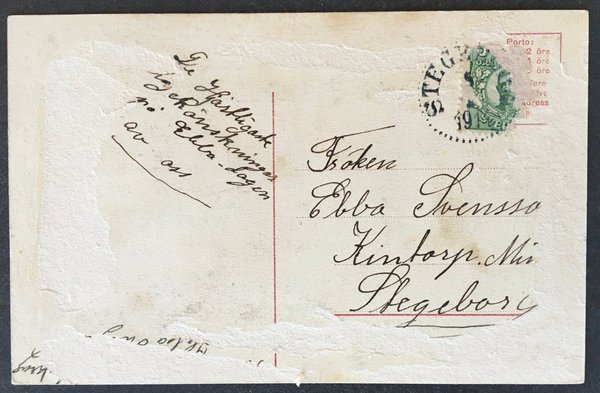 De hjärtligaste
lyckönskningar
på Ebba-dagen
av oss
STEGEB
191
Porto:
2 öre
öre
öre
Fröken
Ebba Svensso
Kintorp. Min
Stegeborg